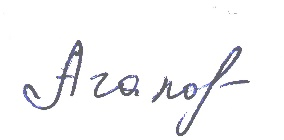 Агапов